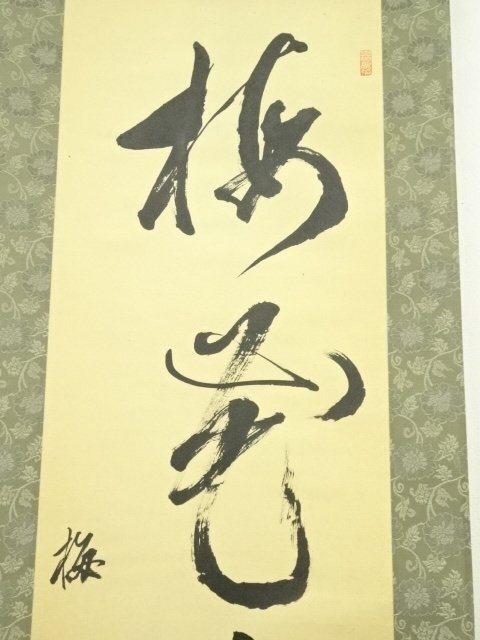 梅花
梅